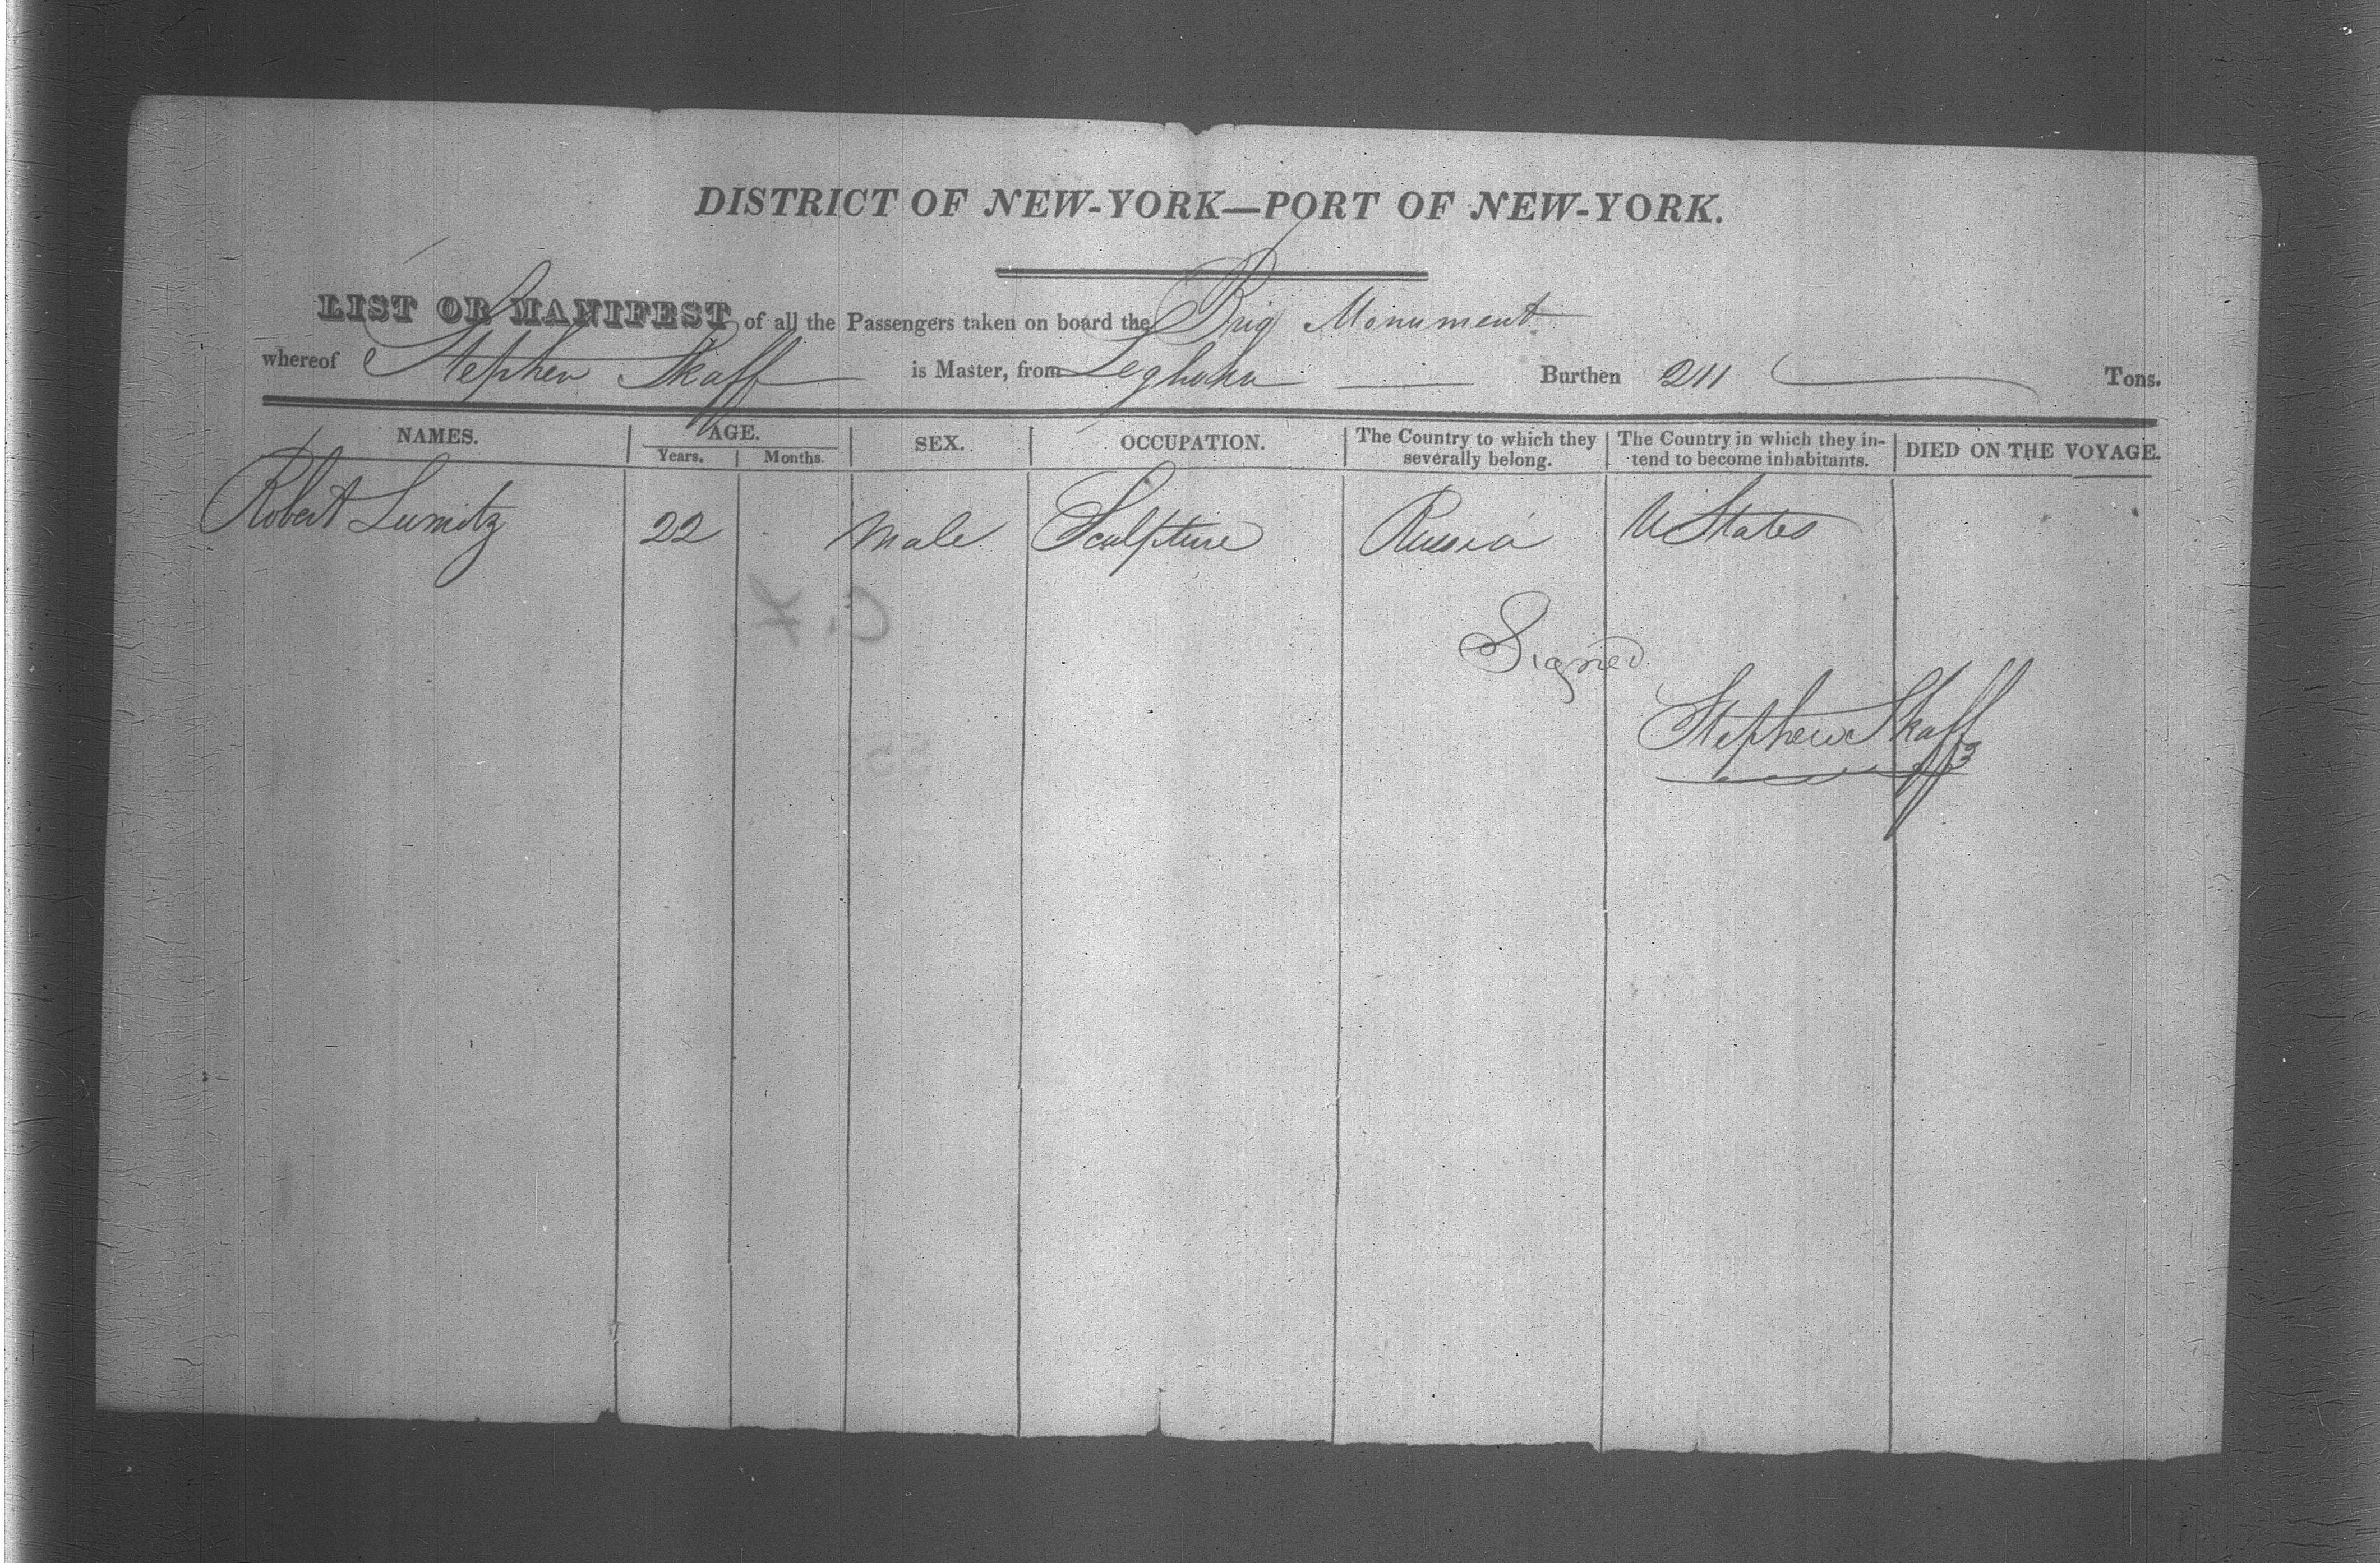 DISTRICT OF NEW-YORK—PORT OF NEW-YORK.
LIST OR MANIFEST of all the Passengers taken on board the Brig Monument
whereof Stephen Skaff is Master, from Leghorn Burthen 211 Tons.
NAMES. AGE. Years. Months. SEX. OCCUPATION. The Country to which they severally belong. The Country in which they intend to become inhabitants. DIED ON THE VOYAGE.
Robert 22 Male Sculpture Russia U States
Signed
Stephen Skaff